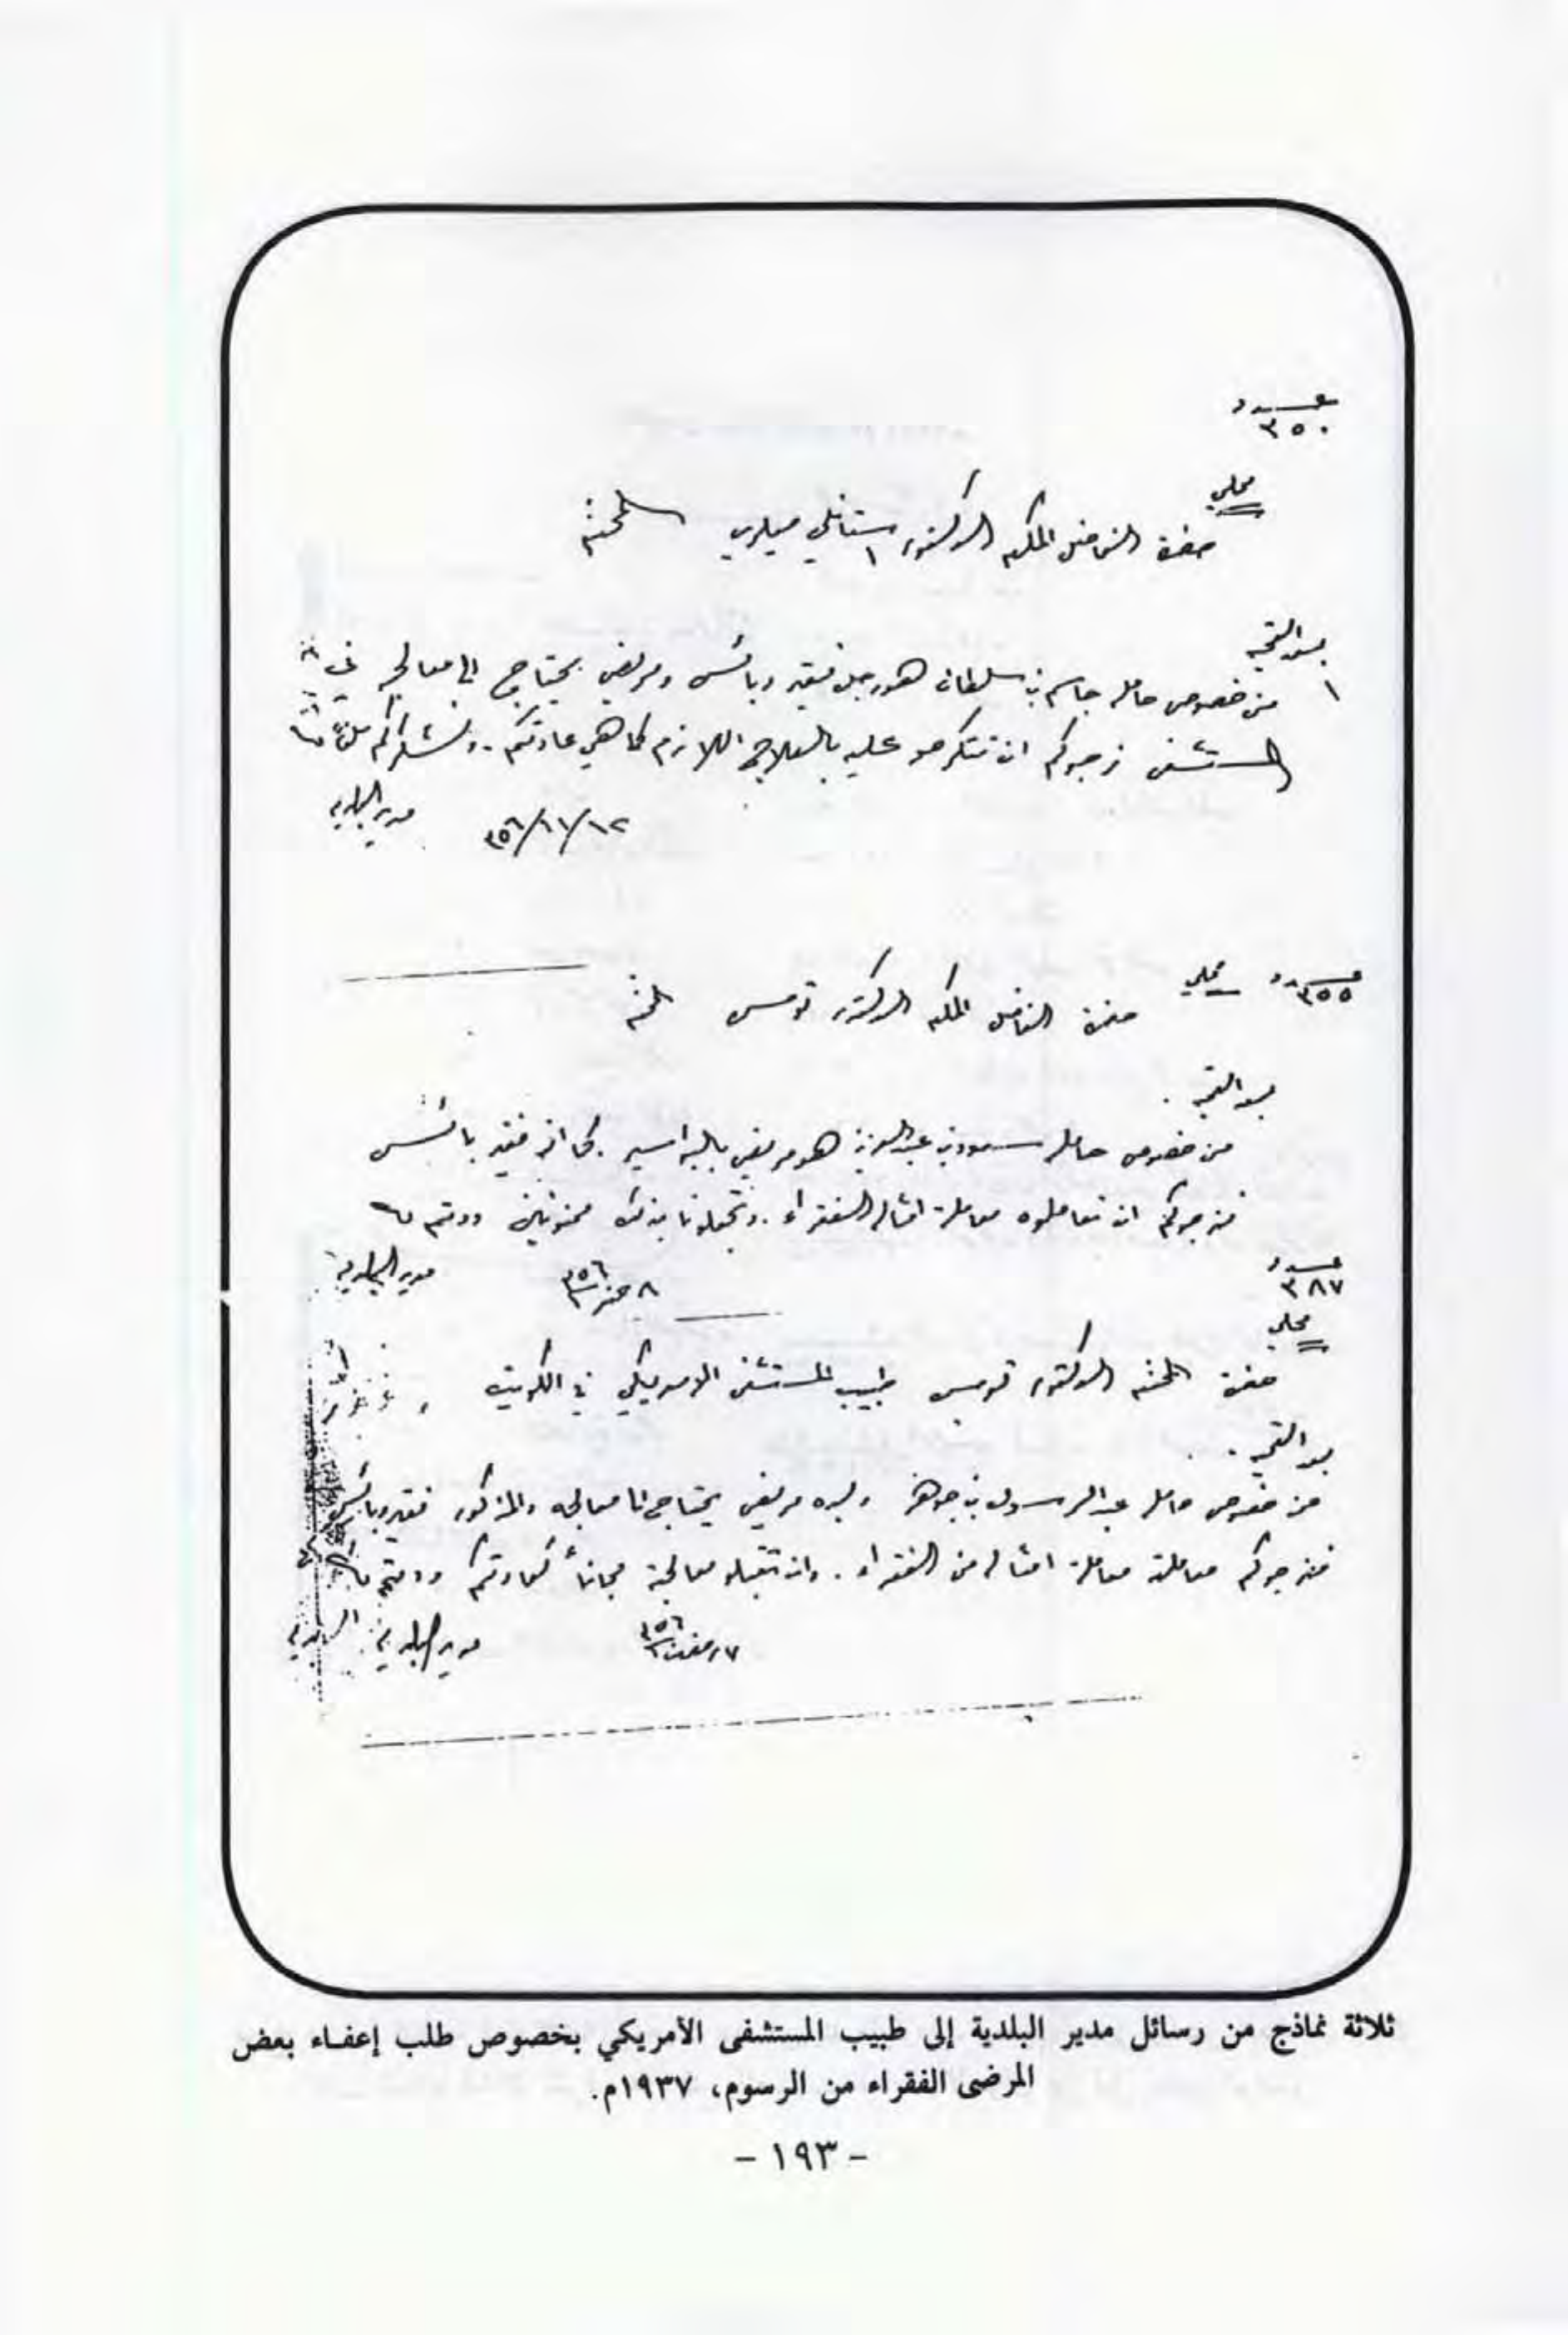 عدد
٣٥٠
محلي
حضرة الفاضل المكرم الدكتور استانلي ميلري المحترم
بعد التحية
من خصوص حامله جاسم بن سلطان هو رجل فقير وبائس ومريض يحتاج الى معالجه في
المستشفى نرجوكم ان تتكرمو عليه بالعلاج اللازم كما هي عادتكم. ونشكركم
١٢/١١/٣٥٦ مدير البلدية
عدد ٣٥٥ محلي
حضرة الفاضل المكرم الدكتور تومس المحترم
بعد التحية.
من خصوص حامله سعود بن عبدالعزيز هو مريض بالبواسير كما انه فقير بائس
فنرجوكم ان تعاملوه معاملة امثاله الفقراء. وتجعلونا بذلك ممنونين ودمتم
٨ ٣٥٦ مدير البلدية
عدد
٣٨٧
محلي
حضرة المحترم الدكتور تومس طبيب المستشفى الامريكي في الكويت
بعد التحية.
من خصوص حامله عبدالرسول بن جوهر ولده مريض يحتاج الى معالجه والمذكور فقير وبائس
فنرجوكم معاملته معاملة امثاله من الفقراء. وان تقبلو معالجته مجاناً كعادتكم ودمتم
٧ رمضان ٣٥٦ مدير البلدية
ثلاثة نماذج من رسائل مدير البلدية إلى طبيب المستشفى الأمريكي بخصوص طلب إعفاء بعض
المرضى الفقراء من الرسوم، ١٩٣٧م.
- ١٩٣ -